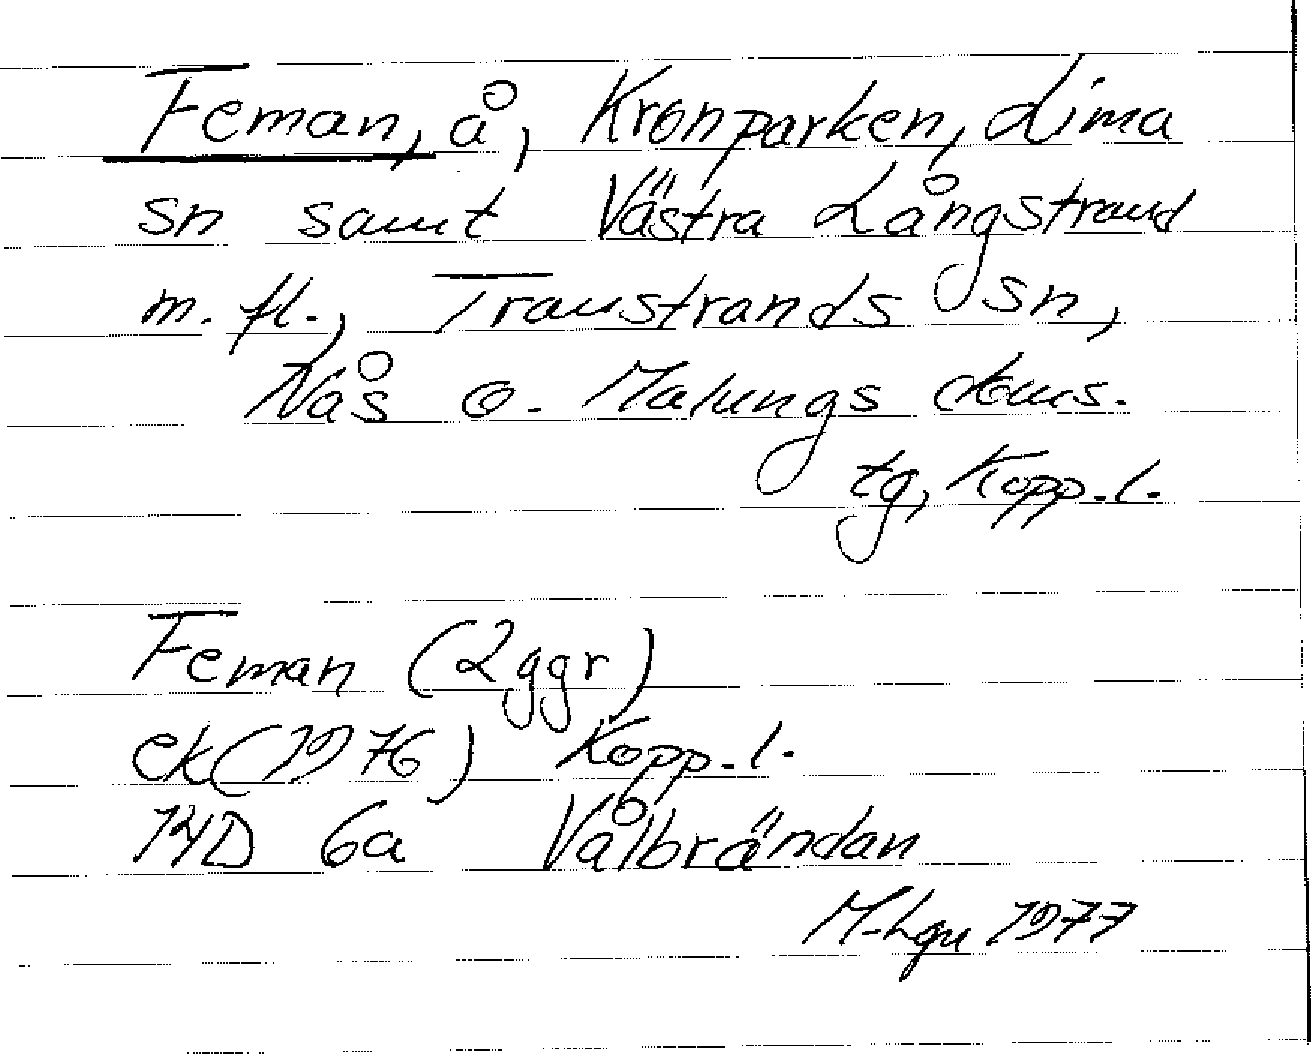 Feman, å, Kronparken, Lima
sn samt Västra Långstrand
m. fl., Transtrands sn,
Nås o. Malungs doms.
tg, Kopp. l.
Feman (2 ggr)
ek (1976) Kopp. l.
14D 6a Vålbrändan
M-Lgn 1977